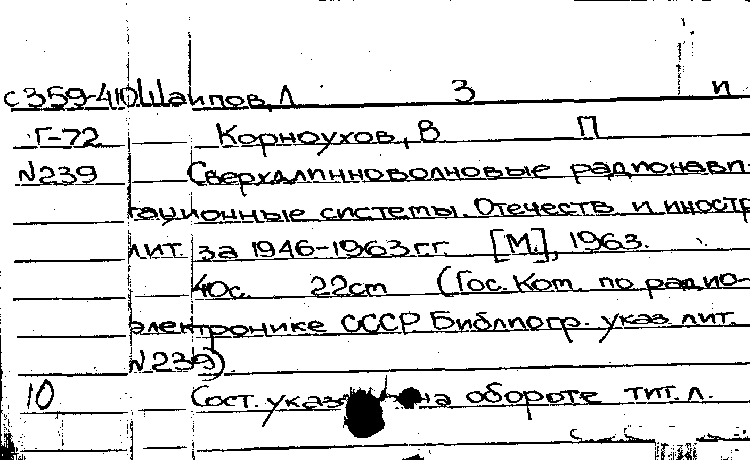 с359-410 Шаипов, Л З и
Г-72 Корноухов, В П
N239 Сверхдлинноволновые радионави-
гационные системы. Отечеств и иностр
лит. за 1946-1963 г.г. [М.], 1963.
40с. 22cm (Гос. Ком. по радио-
электронике СССР Библиогр. указ лит.
N239)
10 Сост. указ на обороте тит. л.